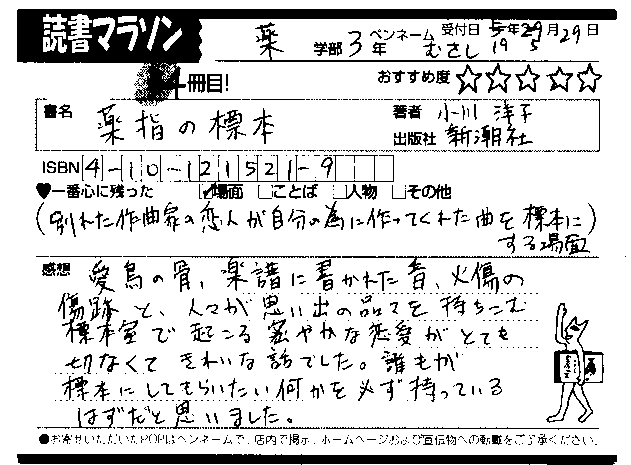 読書マラソン
薬 学部 3年 ペンネーム むさし 受付日 19年5月29日
4冊目!
おすすめ度 ☆☆☆☆☆
書名 薬指の標本
著者 小川 洋子
出版社 新潮社
ISBN 4-10-121521-9
♥一番心に残った ☑場面 □ことば □人物 □その他
(別れた作曲家の恋人が自分の為に作ってくれた曲を標本に)
する場面
感想 愛鳥の骨、楽譜に書かれた音、火傷の
傷跡と、人々が思い出の品々を持ちこむ
標本室で起こる密やかな恋愛がとても
切なくてきれいな話でした。誰もが
標本にしてもらいたい何かを必ず持っている
はずだと思いました。
●お寄せいただいたPOPはペンネームで、店内で掲示、ホームページおよび宣伝物への転載をご了承ください。